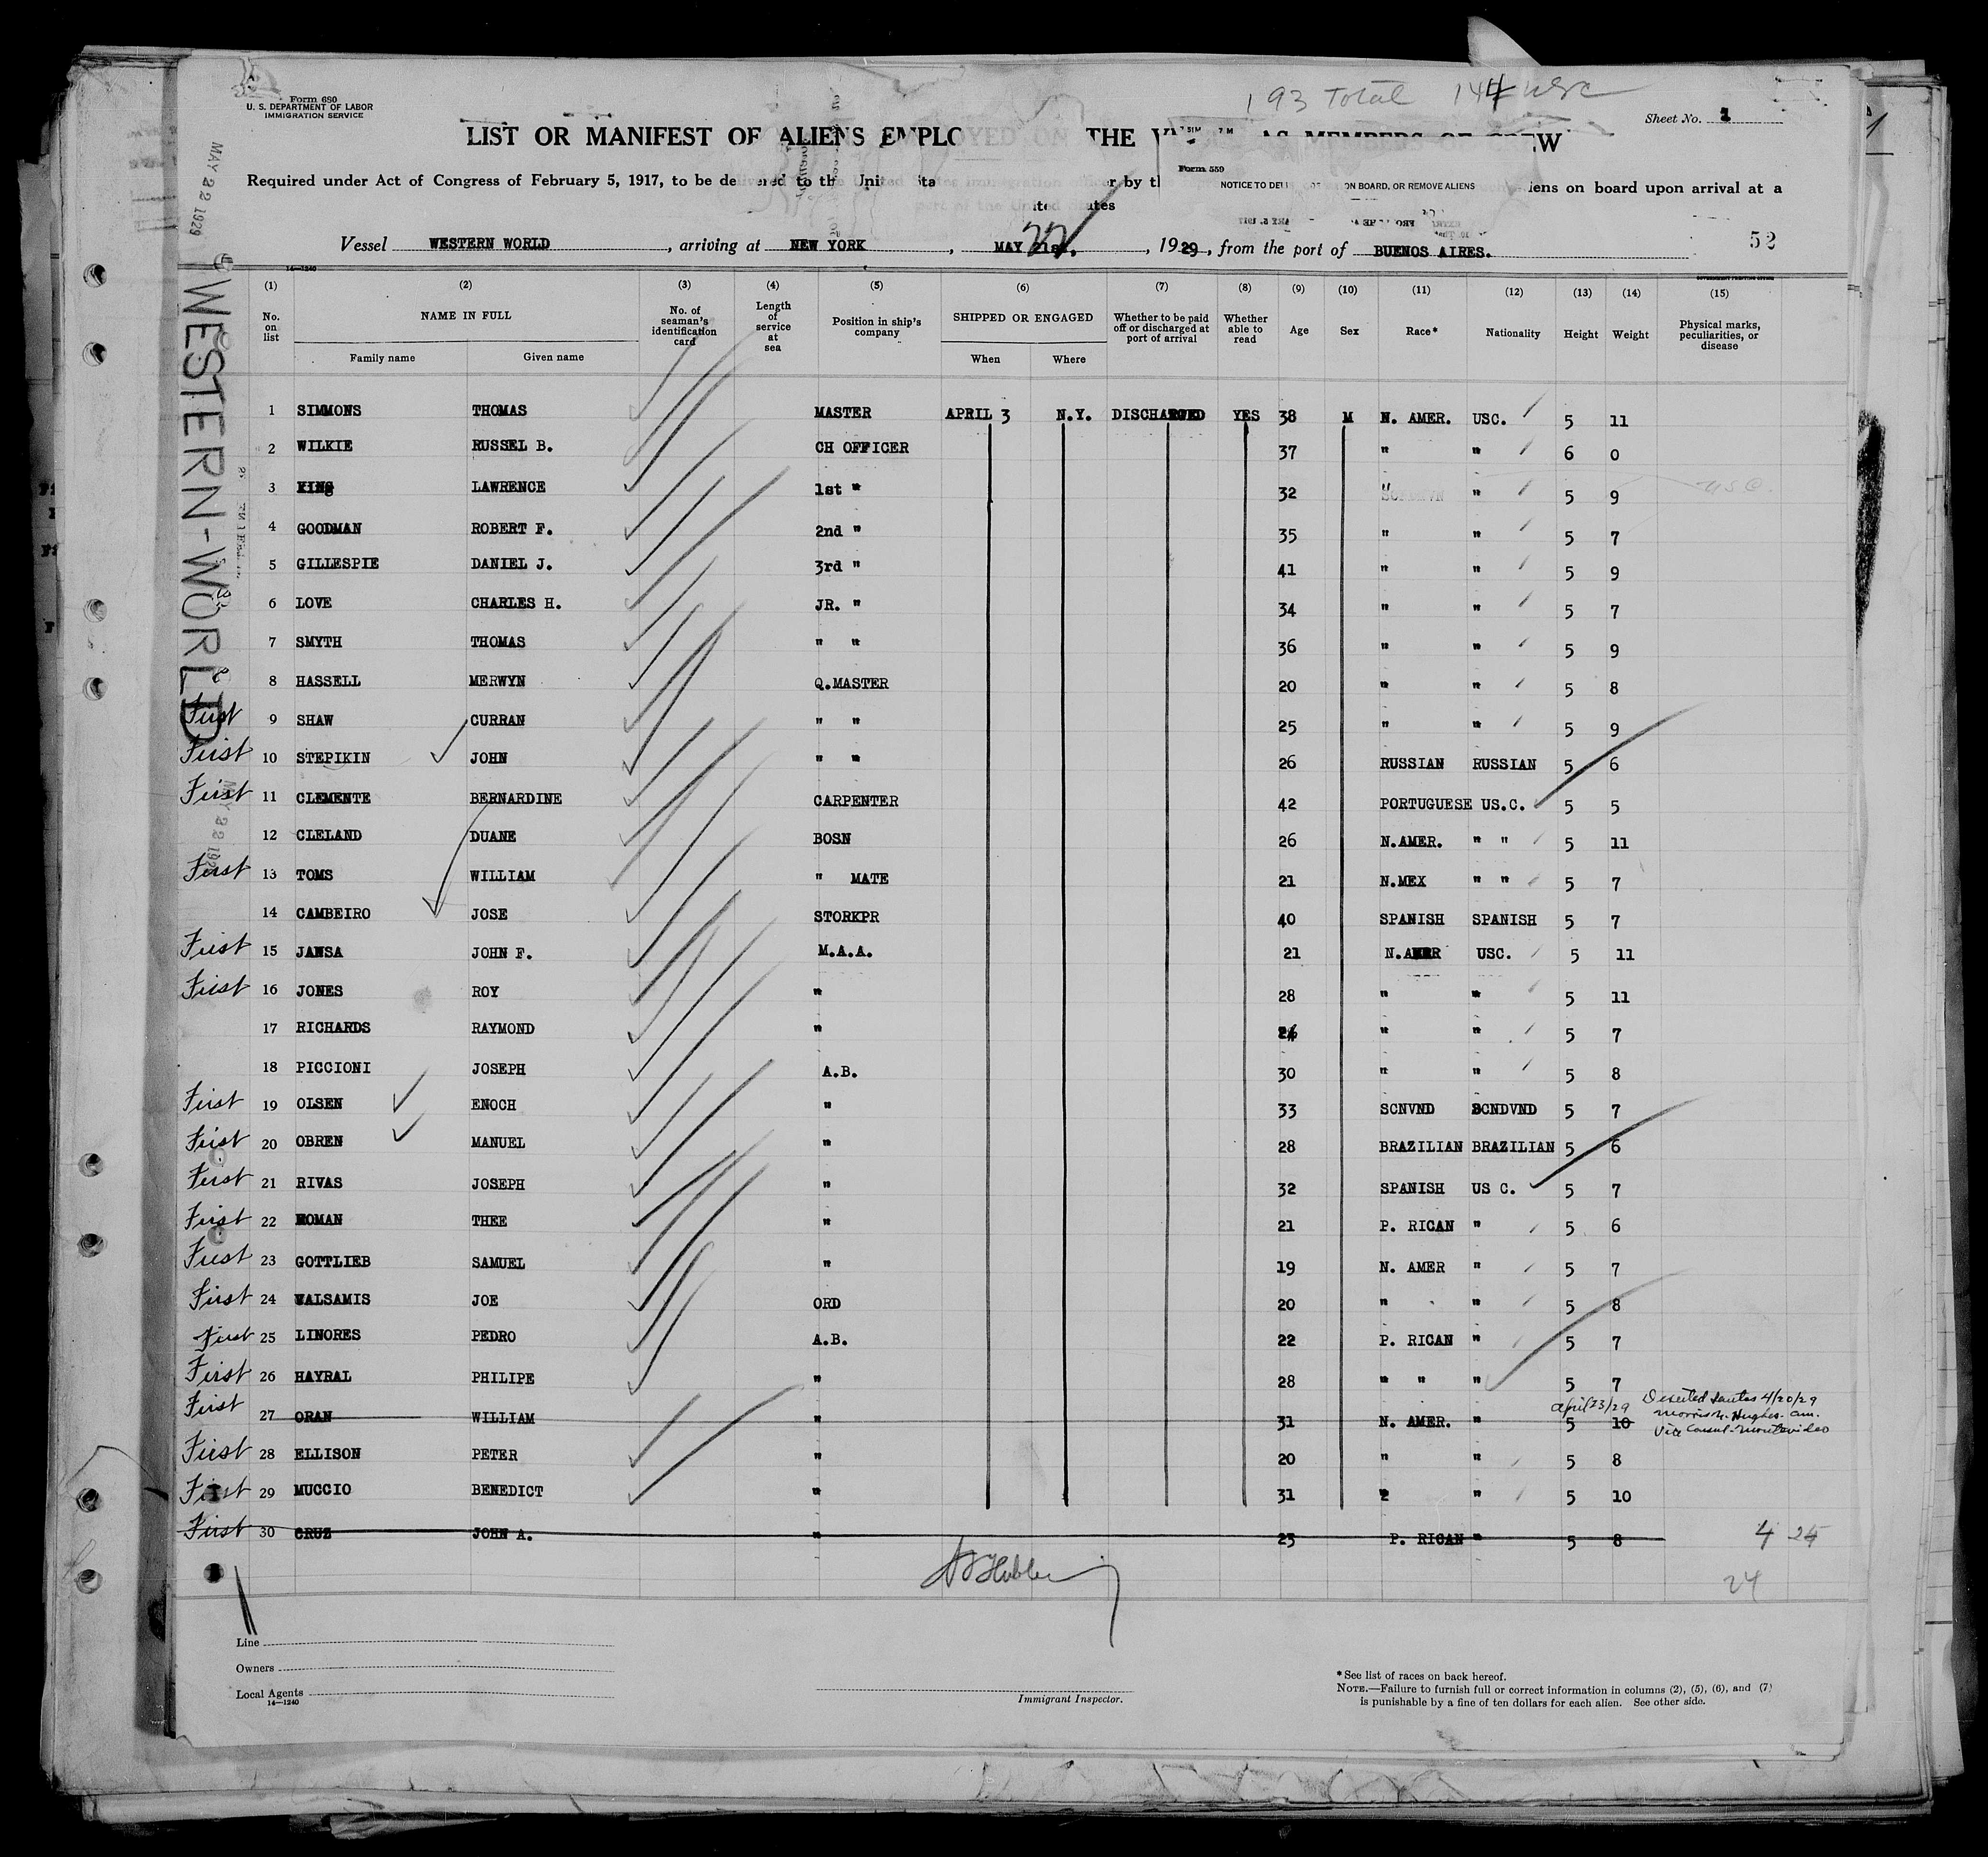 193 Total 144 USC
Form 680
U. S. DEPARTMENT OF LABOR
IMMIGRATION SERVICE
Sheet No. 1
LIST OR MANIFEST OF ALIENS EMPLOYED ON THE AS MEMBERS OF CREW
Form 559
Required under Act of Congress of February 5, 1917, to be delivered to the United States Immigration officer by the
NOTICE TO ON BOARD, OR REMOVE ALIENS
aliens on board upon arrival at a
port of the United States
Vessel WESTERN WORLD, arriving at NEW YORK, MAY 21st, 22 1929, from the port of BUENOS AIRES.
52
MAY 22 1929
WESTERN-WORLD
14—1240
GOVERNMENT PRINTING OFFICE
(1) (2) (3) (4) (5) (6) (7) (8) (9) (10) (11) (12) (13) (14) (15)
No. on list
NAME IN FULL
Family name
Given name
No. of seaman's identification card
Length of service at sea
Position in ship's company
SHIPPED OR ENGAGED
When
Where
Whether to be paid off or discharged at port of arrival
Whether able to read
Age
Sex
Race*
Nationality
Height
Weight
Physical marks, peculiarities, or disease
1 SIMMONS THOMAS MASTER APRIL 3 N.Y. DISCHARGED YES 38 M N. AMER. USC. 5 11
2 WILKIE RUSSEL B. CH OFFICER 37 " " 6 0
3 KING LAWRENCE 1st " 32 " " 5 9 USC.
4 GOODMAN ROBERT F. 2nd " 35 " " 5 7
5 GILLESPIE DANIEL J. 3rd " 41 " " 5 9
6 LOVE CHARLES H. JR. " 34 " " 5 7
7 SMYTH THOMAS " " 36 " " 5 9
8 HASSELL MERWYN Q.MASTER 20 " " 5 8
First 9 SHAW CURRAN " " 25 " " 5 9
First 10 STEPIKIN JOHN " " 26 RUSSIAN RUSSIAN 5 6
First 11 CLEMENTE BERNARDINE CARPENTER 42 PORTUGUESE US.C. 5 5
12 CLELAND DUANE BOSN 26 N.AMER. " " 5 11
First 13 TOMS WILLIAM " MATE 21 N.MEX " " 5 7
14 CAMBEIRO JOSE STORKPR 40 SPANISH SPANISH 5 7
First 15 JANSA JOHN F. M.A.A. 21 N.AMER USC. 5 11
First 16 JONES ROY " 28 " " 5 11
17 RICHARDS RAYMOND " " " 5 7
18 PICCIONI JOSEPH A.B. 30 " " 5 8
First 19 OLSEN ENOCH " 33 SCNVND SCNDVND 5 7
First 20 OBREN MANUEL " 28 BRAZILIAN BRAZILIAN 5 6
First 21 RIVAS JOSEPH " 32 SPANISH US C. 5 7
First 22 ROMAN THEE " 21 P. RICAN " 5 6
First 23 GOTTLIEB SAMUEL " 19 N. AMER " 5 7
First 24 VALSAMIS JOE ORD 20 " " 5 8
First 25 LINORES PEDRO A.B. 22 P. RICAN " 5 7
First 26 HAYRAL PHILIPE " 28 " " " 5 7
First 27 ORAN WILLIAM " 31 N. AMER. " 5 10
April 23/29
Deserted Santos 4/20/29
Morris N. Hughes. Am.
Vice Consul - Montevideo
First 28 ELLISON PETER " 20 " " 5 8
First 29 MUCCIO BENEDICT " 31 2 " 5 10
First 30 CRUZ JOHN A. " 23 P. RICAN " 5 8
4 24
24
Line
Owners
Local Agents
14—1240
Immigrant Inspector.
*See list of races on back hereof.
NOTE.—Failure to furnish full or correct information in columns (2), (5), (6), and (7)
is punishable by a fine of ten dollars for each alien. See other side.